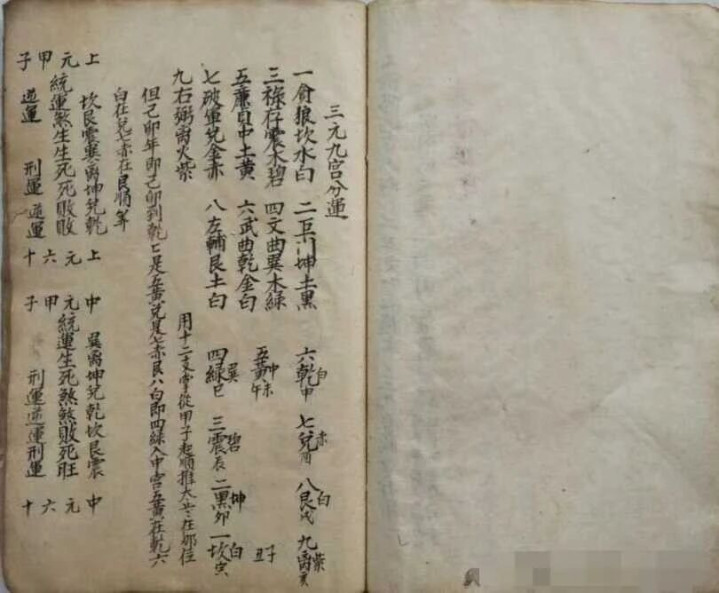 三元九宮分運
一貪狼坎水白 二巨門坤土黑
三祿存震木碧 四文曲巽木綠
五廉貞中土黃 六武曲乾金白
七破軍兌金赤 八左輔艮土白
九右弼离火紫
六乾白申 七兌赤酉 八艮白戌 九离紫亥
五黃中午未
四綠巽巳 三震碧辰 二黑坤卯 一坎白寅
丑子
用十二支掌從甲子起順推太歲在那位
但己卯年即己卯到乾七是五黃兌是七赤艮八白即四綠入中宮五黃在乾六
白在兌七赤在艮順筭
上 坎艮震巽离坤兌乾 上
元 元
甲 統運煞生生死死敗敗 六
子 逆運 刑運 逆運 十
中 巽离坤兌乾坎艮震 中
元 元
甲 統運生死煞煞敗死旺 六
子 刑運逆運刑運 十